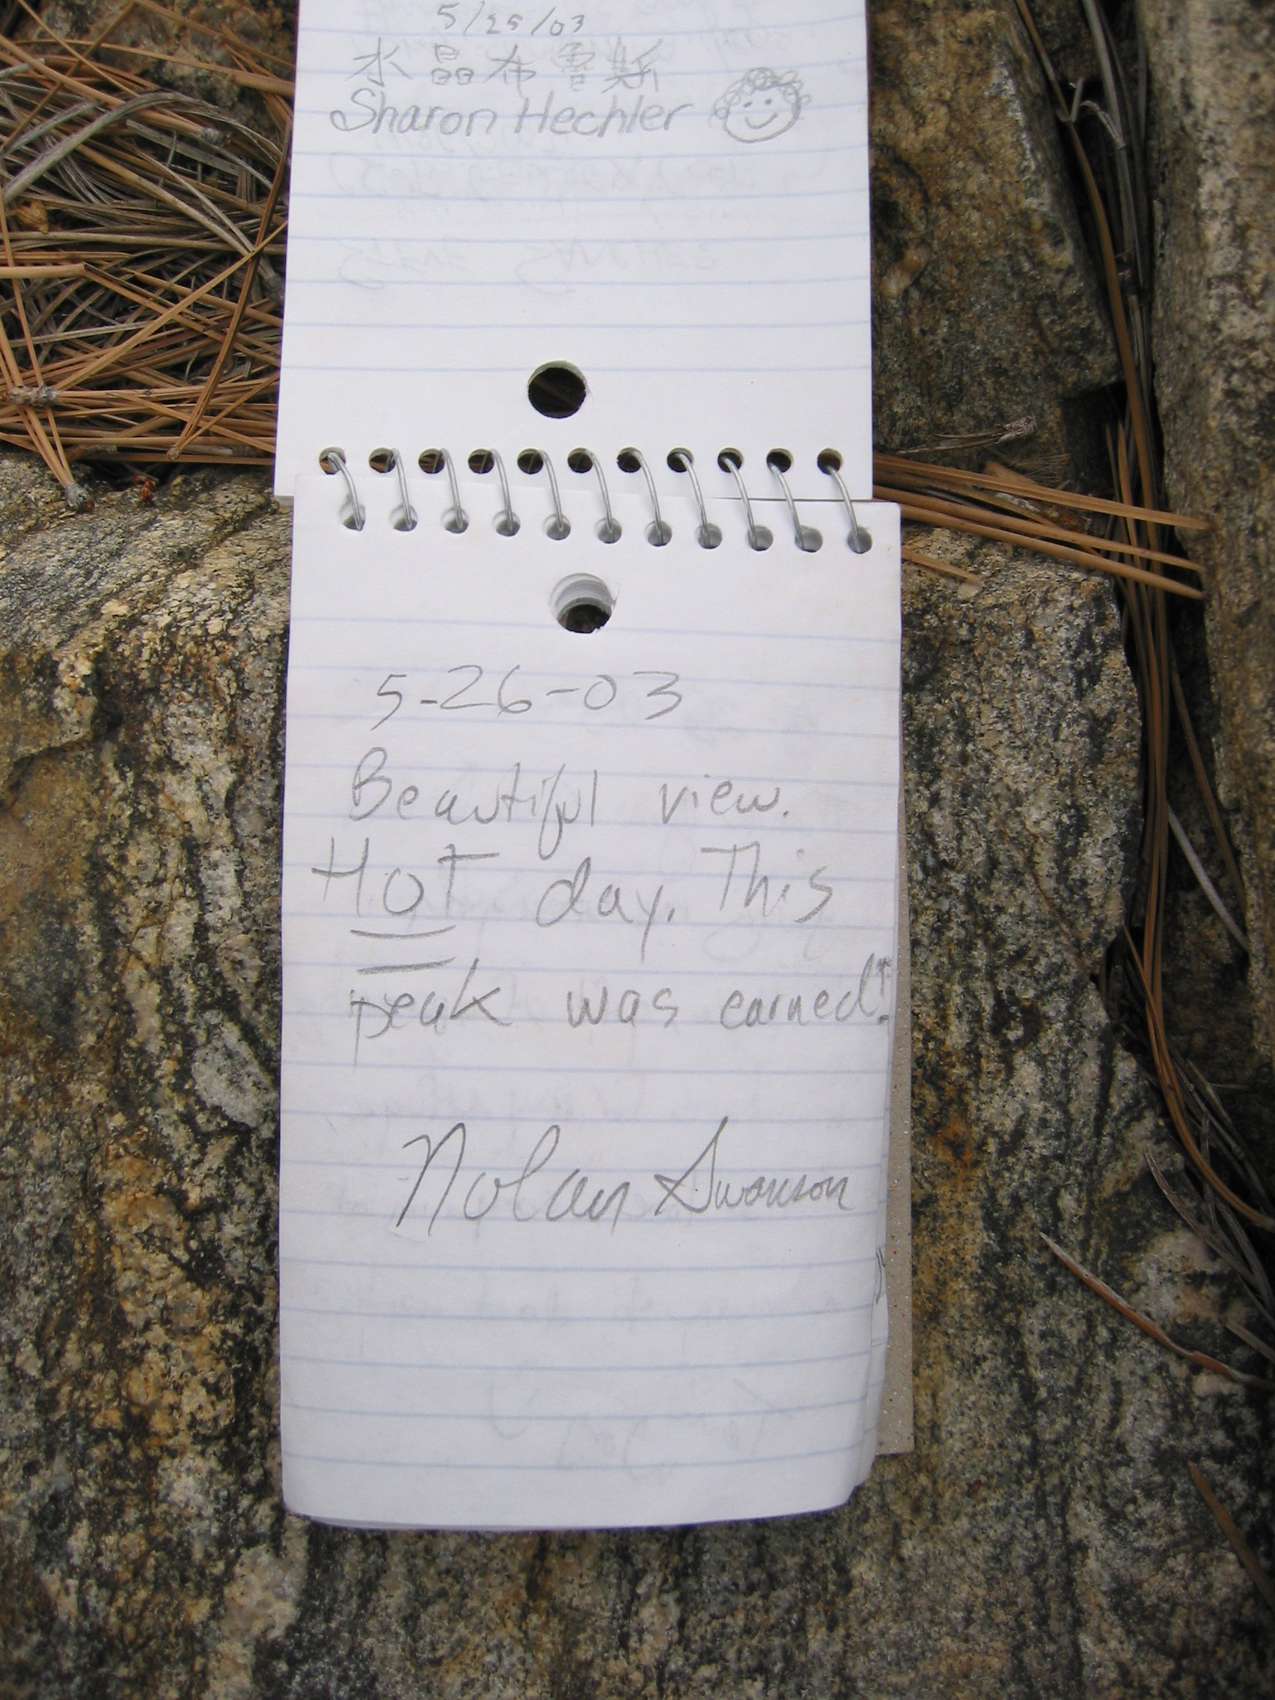 5/25/03
水晶布魯斯
Sharon Hechler
5-26-03
Beautiful view.
HOT day. This
peak was earned!
Nolan Swanson